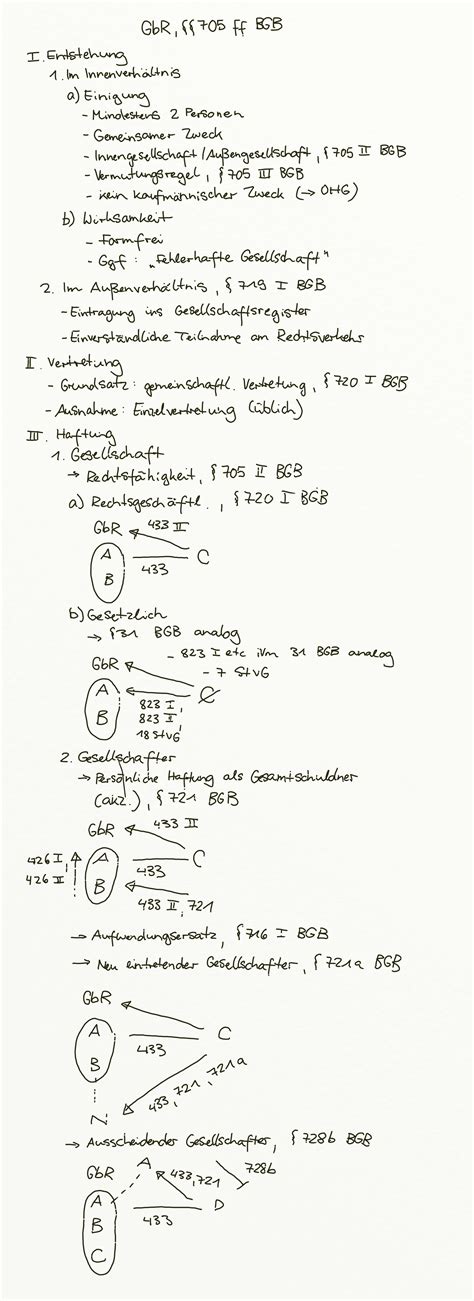 GbR, §§ 705 ff BGB
I. Entstehung
1. Im Innenverhältnis
a) Einigung
- Mindestens 2 Personen
- Gemeinsamer Zweck
- Innengesellschaft/Außengesellschaft, § 705 II BGB
- Vermutungsregel, § 705 III BGB
- kein kaufmännischer Zweck (→ OHG)
b) Wirksamkeit
- Formfrei
- Ggf: „Fehlerhafte Gesellschaft"
2. Im Außenverhältnis, § 719 I BGB
- Eintragung ins Gesellschaftsregister
- Einverständliche Teilnahme am Rechtsverkehr
II. Vertretung
- Grundsatz: gemeinschaftl. Vertretung, § 720 I BGB
- Ausnahme: Einzelvertretung (üblich)
III. Haftung
1. Gesellschaft
→ Rechtsfähigkeit, § 705 II BGB
a) Rechtsgeschäftl., § 720 I BGB
GbR 433 II
A C
433
B
b) Gesetzlich
→ § 31 BGB analog
- 823 I etc iVm 31 BGB analog
GbR - 7 StVG
A C
823 I,
B 823 II,
18 StVG
2. Gesellschafter
→ Persönliche Haftung als Gesamtschuldner
(akz.), § 721 BGB
GbR 433 II
426 I, A C
433
426 II B
433 II, 721
→ Aufwendungsersatz, § 716 I BGB
→ Neu eintretender Gesellschafter, § 721a BGB
GbR
A C
433
B
433, 721, 721a
N
→ Ausscheidender Gesellschafter, § 728b BGB
GbR A 433, 721 728b
A D
433
B
C